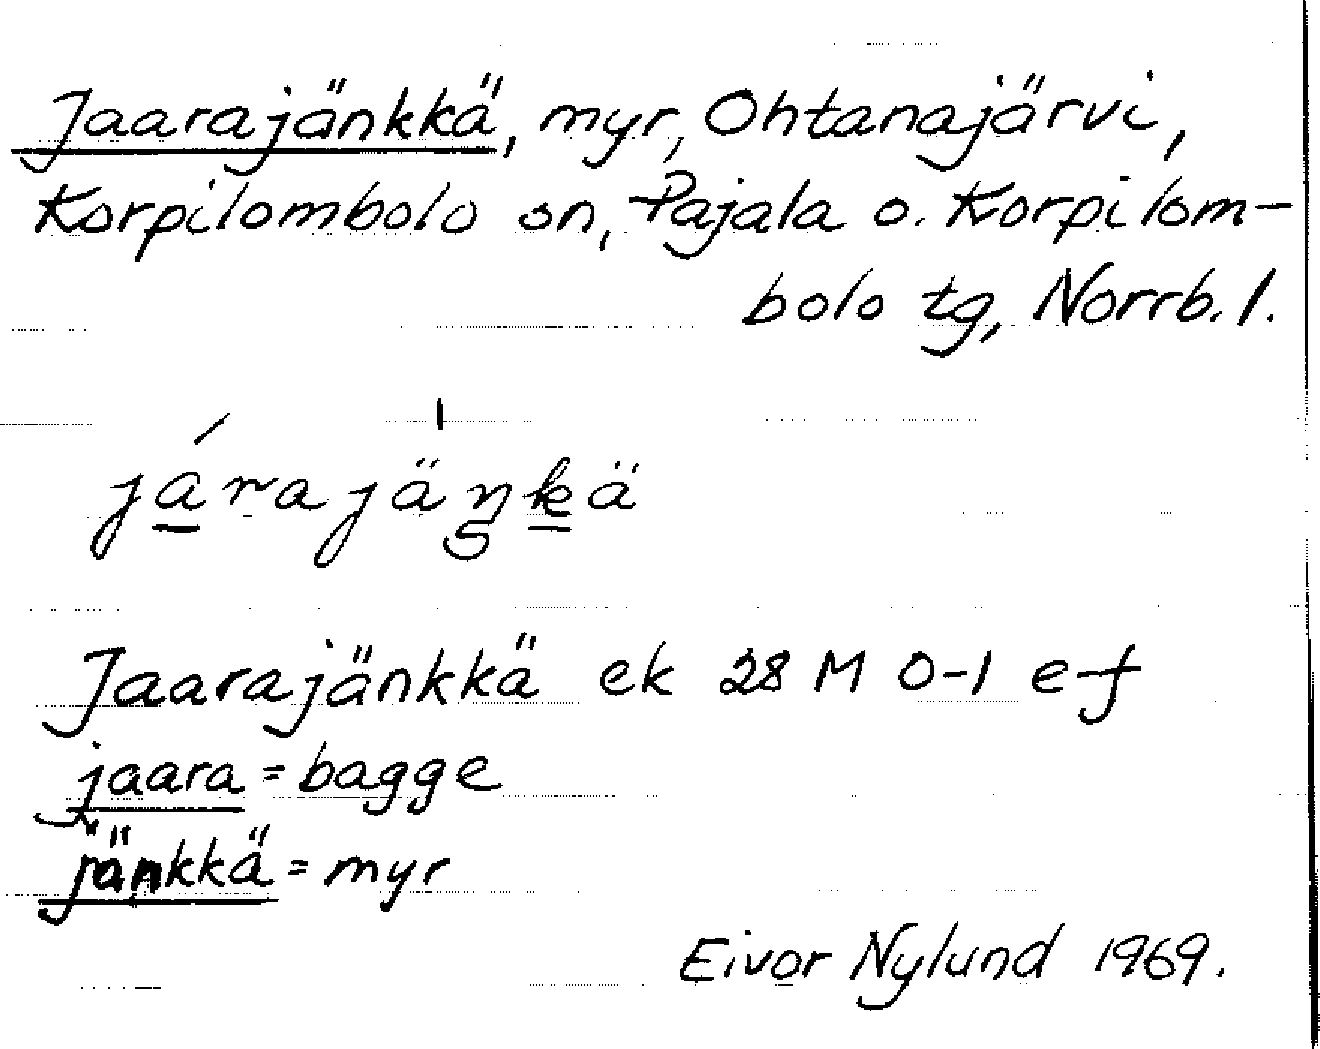 Jaarajänkkä, myr, Ohtanajärvi,
Korpilombolo sn, Pajala o. Korpilom-
bolo tg, Norrb. l.
j́a̲rajäŋk̲ä
Jaarajänkkä ek 28 M 0-1 e f
jaara = bagge
jänkkä = myr
Eivor Nylund 1969.